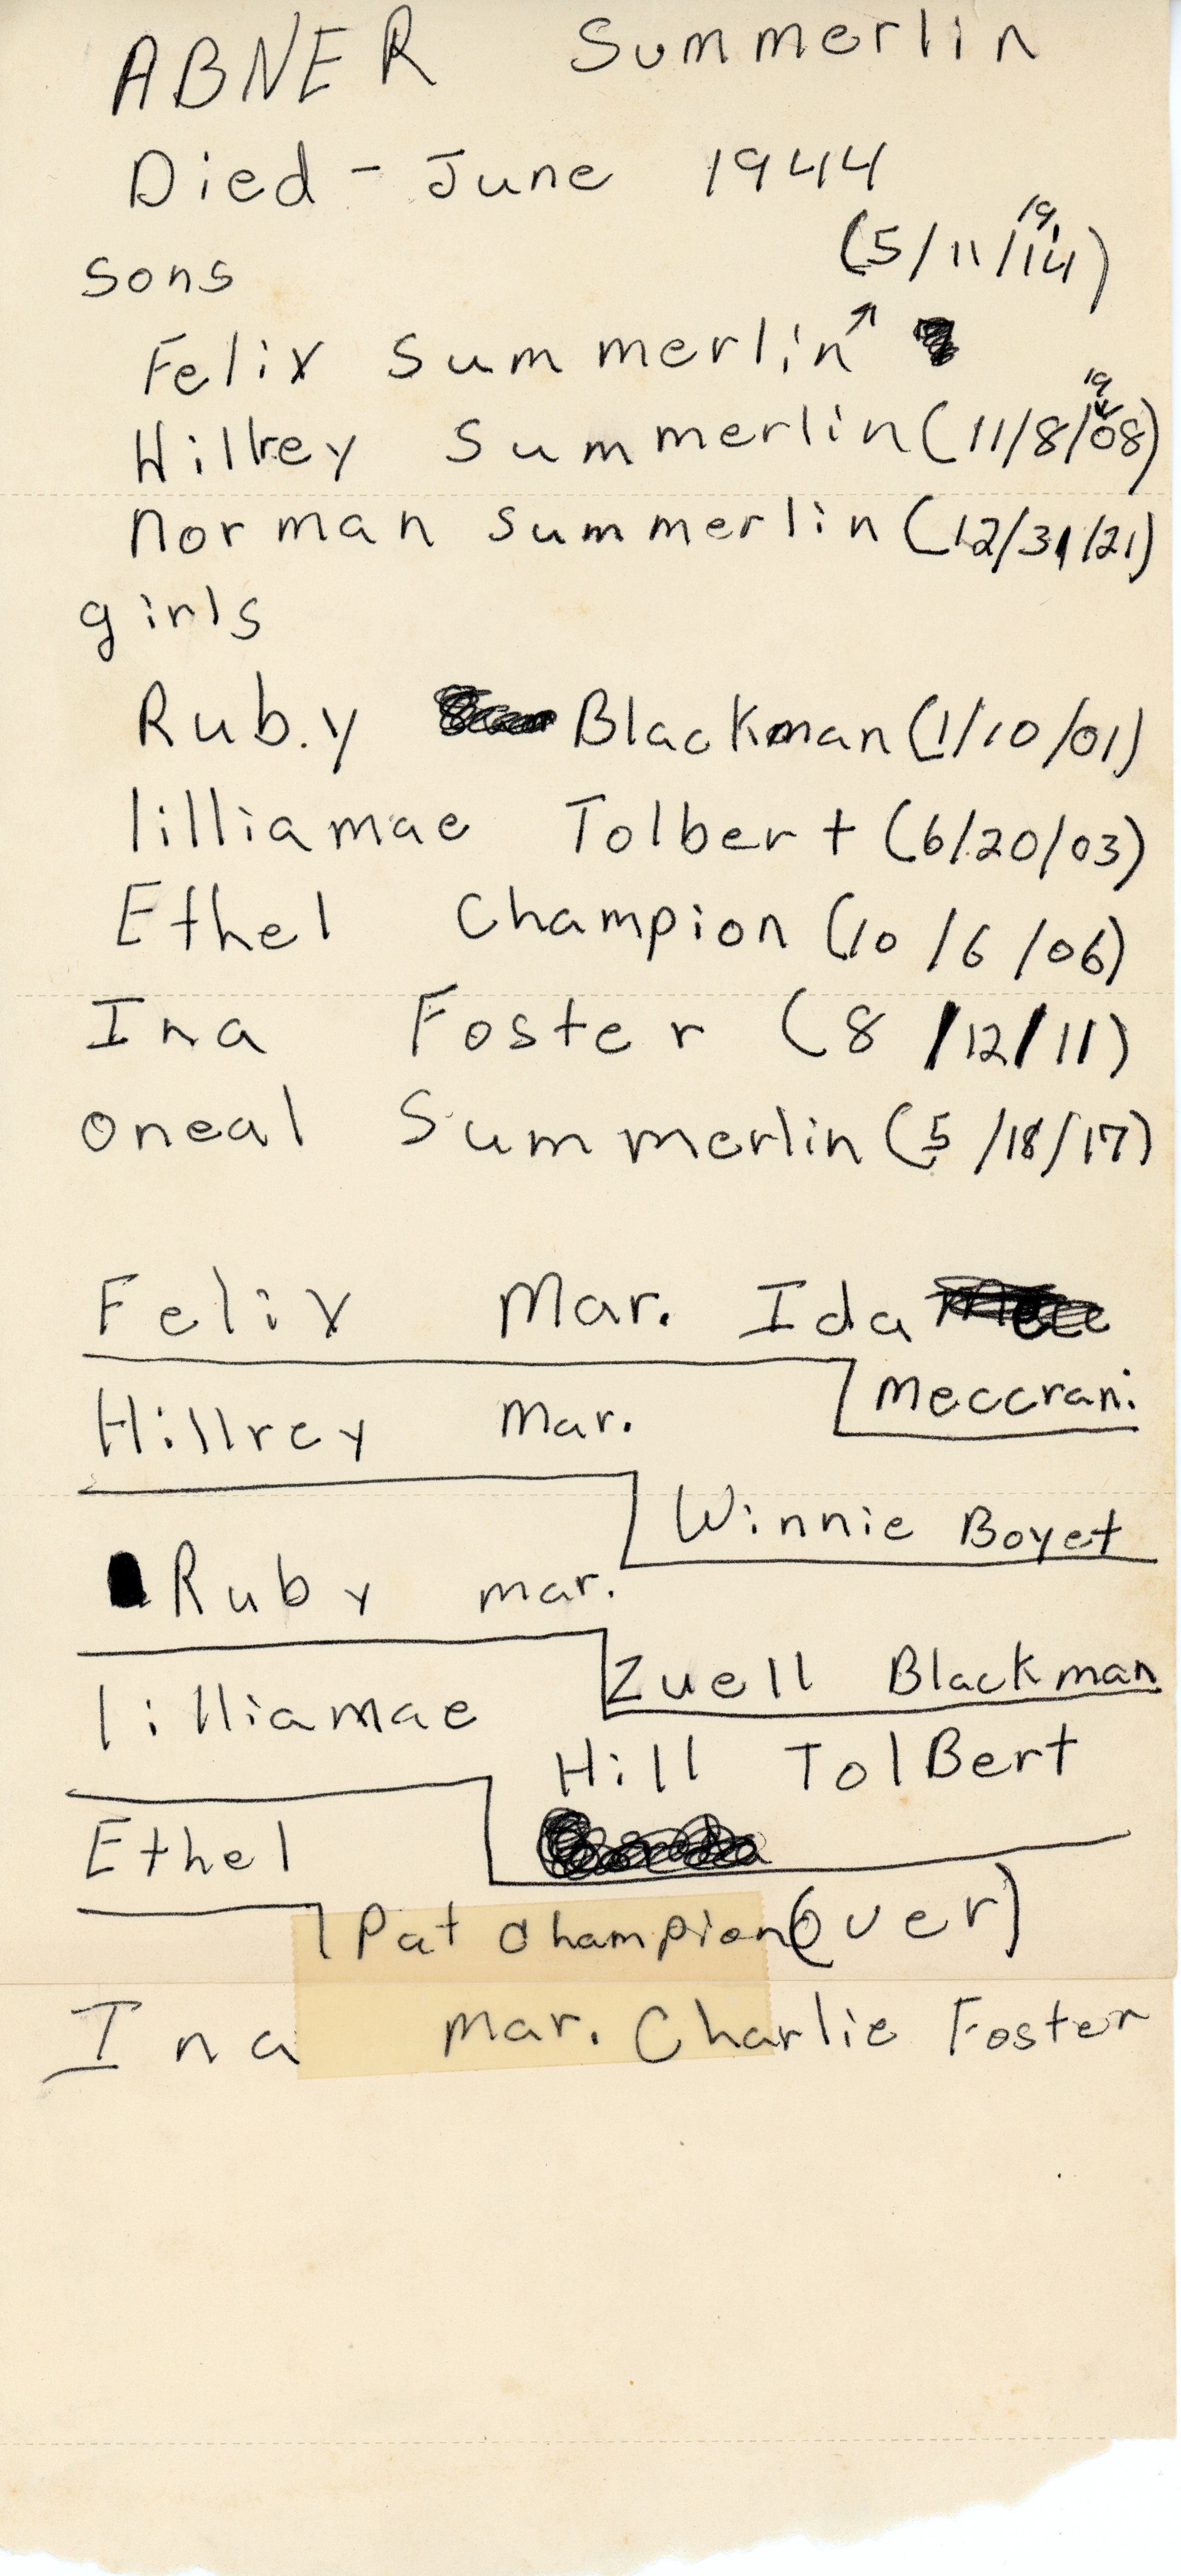 ABNER Summerlin
Died - June 1944
sons
(5/11/19 14)
Felix Summerlin ↗
Hillrey Summerlin (11/8/19 08)
norman summerlin (12/31/21)
girls
Ruby Blackman (1/10/01)
lilliamae Tolbert (6/20/03)
Ethel Champion (10/6/06)
Ina Foster (8/12/11)
oneal Summerlin (5/18/17)
Felix Mar. Ida
Meccrani.
Hillrey Mar.
Winnie Boyet
Ruby mar.
Zuell Blackman
lilliamae
Hill TolBert
Ethel
Pat Champion (over)
Ina mar. Charlie Foster